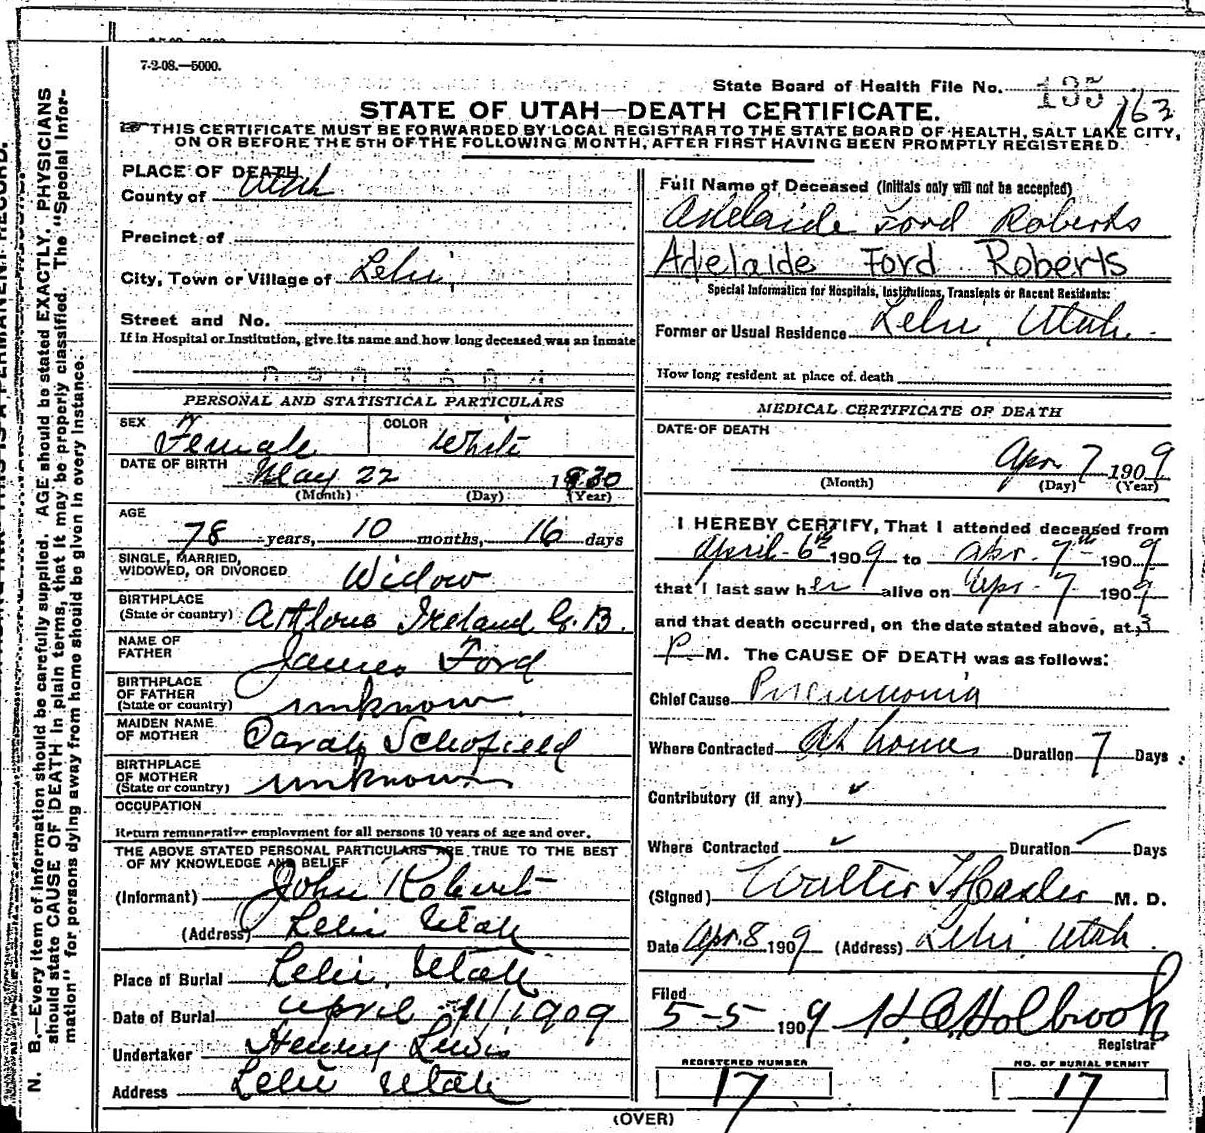 7-2-08.—5000.
State Board of Health File No. 135
163
STATE OF UTAH—DEATH CERTIFICATE.
THIS CERTIFICATE MUST BE FORWARDED BY LOCAL REGISTRAR TO THE STATE BOARD OF HEALTH, SALT LAKE CITY,
ON OR BEFORE THE 5TH OF THE FOLLOWING MONTH, AFTER FIRST HAVING BEEN PROMPTLY REGISTERED.
PLACE OF DEATH
County of Utah
Precinct of
City, Town or Village of Lehi
Street and No.
If in Hospital or Institution, give its name and how long deceased was an inmate
PERSONAL AND STATISTICAL PARTICULARS
SEX Female COLOR White
DATE OF BIRTH May 22 1830
(Month) (Day) (Year)
AGE
78 years, 10 months, 16 days
SINGLE, MARRIED,
WIDOWED, OR DIVORCED Widow
BIRTHPLACE
(State or country) Athlone Ireland G. B.
NAME OF
FATHER James Ford
BIRTHPLACE
OF FATHER
(State or country) unknown
MAIDEN NAME
OF MOTHER Sarah Schofield
BIRTHPLACE
OF MOTHER
(State or country) unknown
OCCUPATION
Return remunerative employment for all persons 10 years of age and over.
THE ABOVE STATED PERSONAL PARTICULARS ARE TRUE TO THE BEST
OF MY KNOWLEDGE AND BELIEF
(Informant) John Roberts
(Address) Lehi Utah
Place of Burial Lehi, Utah
Date of Burial April 11/1909
Undertaker Henry Lewis
Address Lehi Utah
Full Name of Deceased (Initials only will not be accepted)
Adelaide Ford Roberts
Adelaide Ford Roberts
Special Information for Hospitals, Institutions, Transients or Recent Residents:
Former or Usual Residence Lehi, Utah.
How long resident at place of death
MEDICAL CERTIFICATE OF DEATH
DATE OF DEATH
Apr 7 1909
(Month) (Day) (Year)
I HEREBY CERTIFY, That I attended deceased from
April 6th 1909 to Apr. 7th 1909
that I last saw her alive on Apr. 7 1909
and that death occurred, on the date stated above, at 3
P. M. The CAUSE OF DEATH was as follows:
Chief Cause Pneumonia
Where Contracted At home Duration 7 Days
Contributory (if any)
Where Contracted Duration Days
(Signed) Walter T Hasler M. D.
Date Apr. 8 1909 (Address) Lehi, Utah.
Filed
5-5 1909 H C Holbrook
Registrar
REGISTERED NUMBER
17
NO. OF BURIAL PERMIT
17
(OVER)
N. B.—Every item of information should be carefully supplied. AGE should be stated EXACTLY. PHYSICIANS
should state CAUSE OF DEATH in plain terms, that it may be properly classified. The "Special Infor-
mation" for persons dying away from home should be given in every instance.